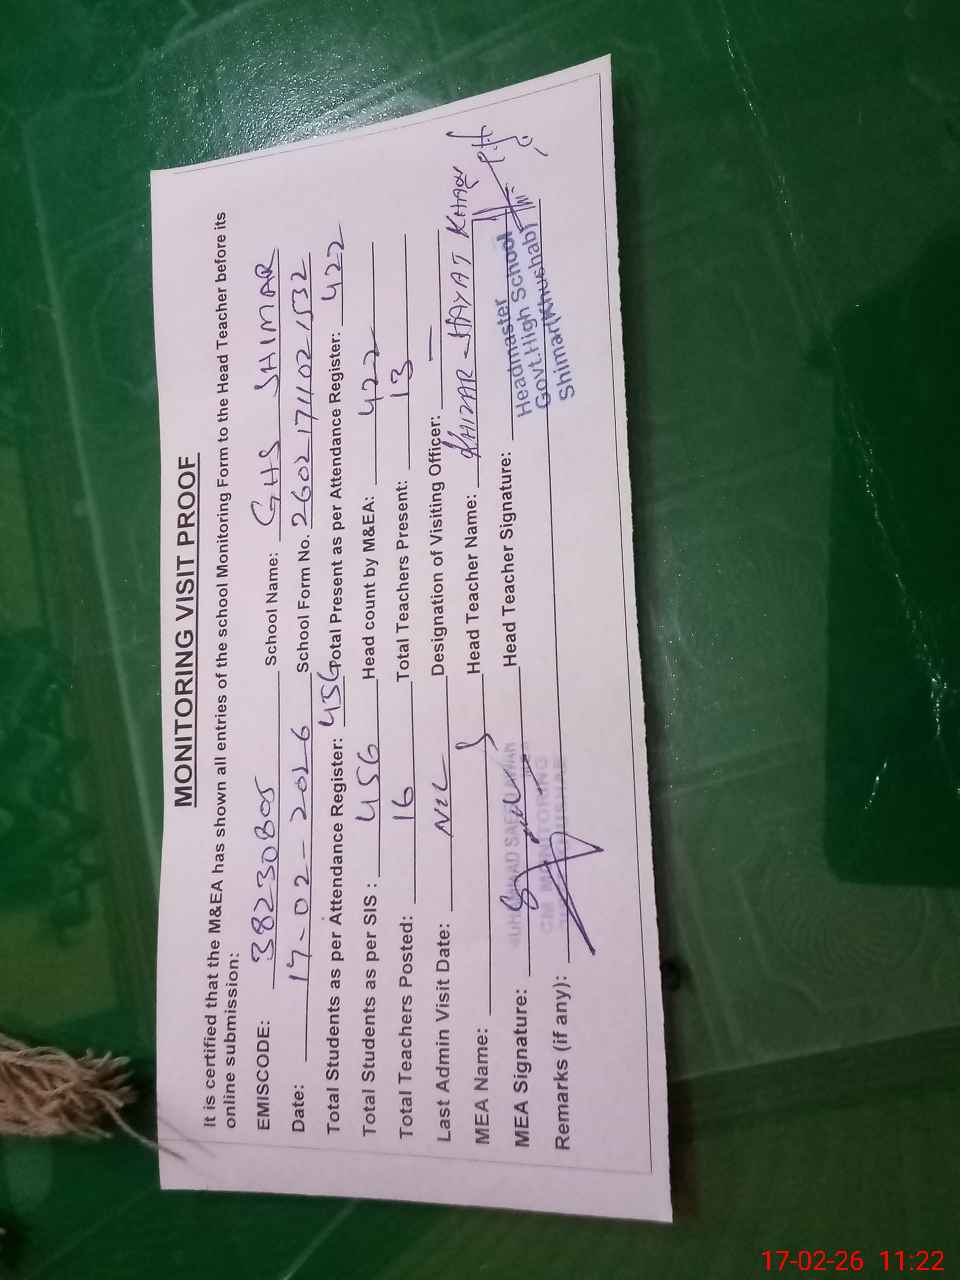 MONITORING VISIT PROOF
It is certified that the M&EA has shown all entries of the school Monitoring Form to the Head Teacher before its
online submission:
EMISCODE: 38230805 School Name: GHS SHIMAR
Date: 17-02-2026 School Form No. 26021711021532
Total Students as per Attendance Register: 456 Total Present as per Attendance Register: 422
Total Students as per SIS : 456 Head count by M&EA: 422
Total Teachers Posted: 16 Total Teachers Present: 13
Last Admin Visit Date: NIL Designation of Visiting Officer: —
MEA Name: Head Teacher Name: KHIZAR HAYAT KHAN
MEA Signature: Head Teacher Signature:
CM MONITORING
Headmaster
Govt.High School
Shimar(Khushab)
Remarks (if any):
17-02-26 11:22